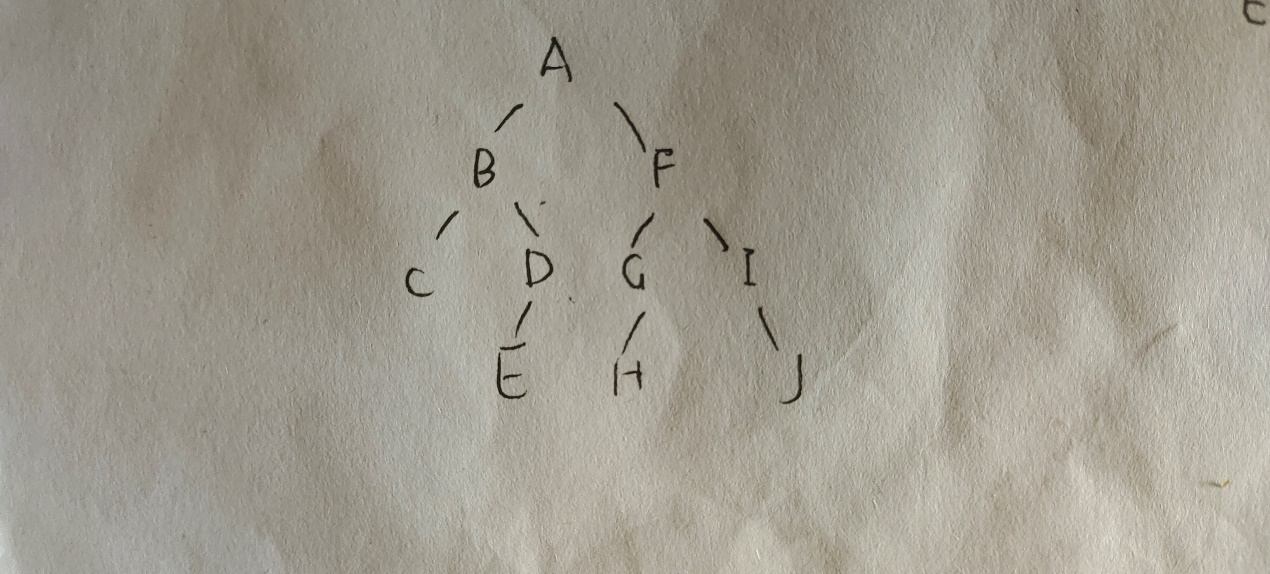 A
B F
C D G I
E H J